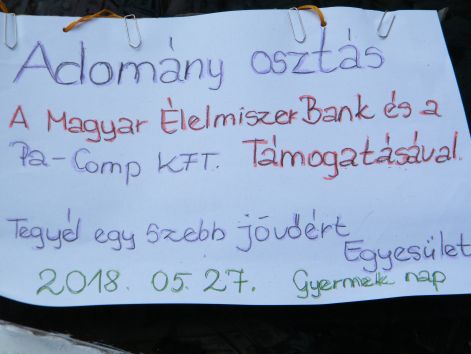 Adomány osztás
A Magyar Élelmiszer Bank és a
Pa-Comp KFT. Támogatásával.
Tegyél egy szebb jövőért
Egyesület
2018. 05. 27. Gyermek nap